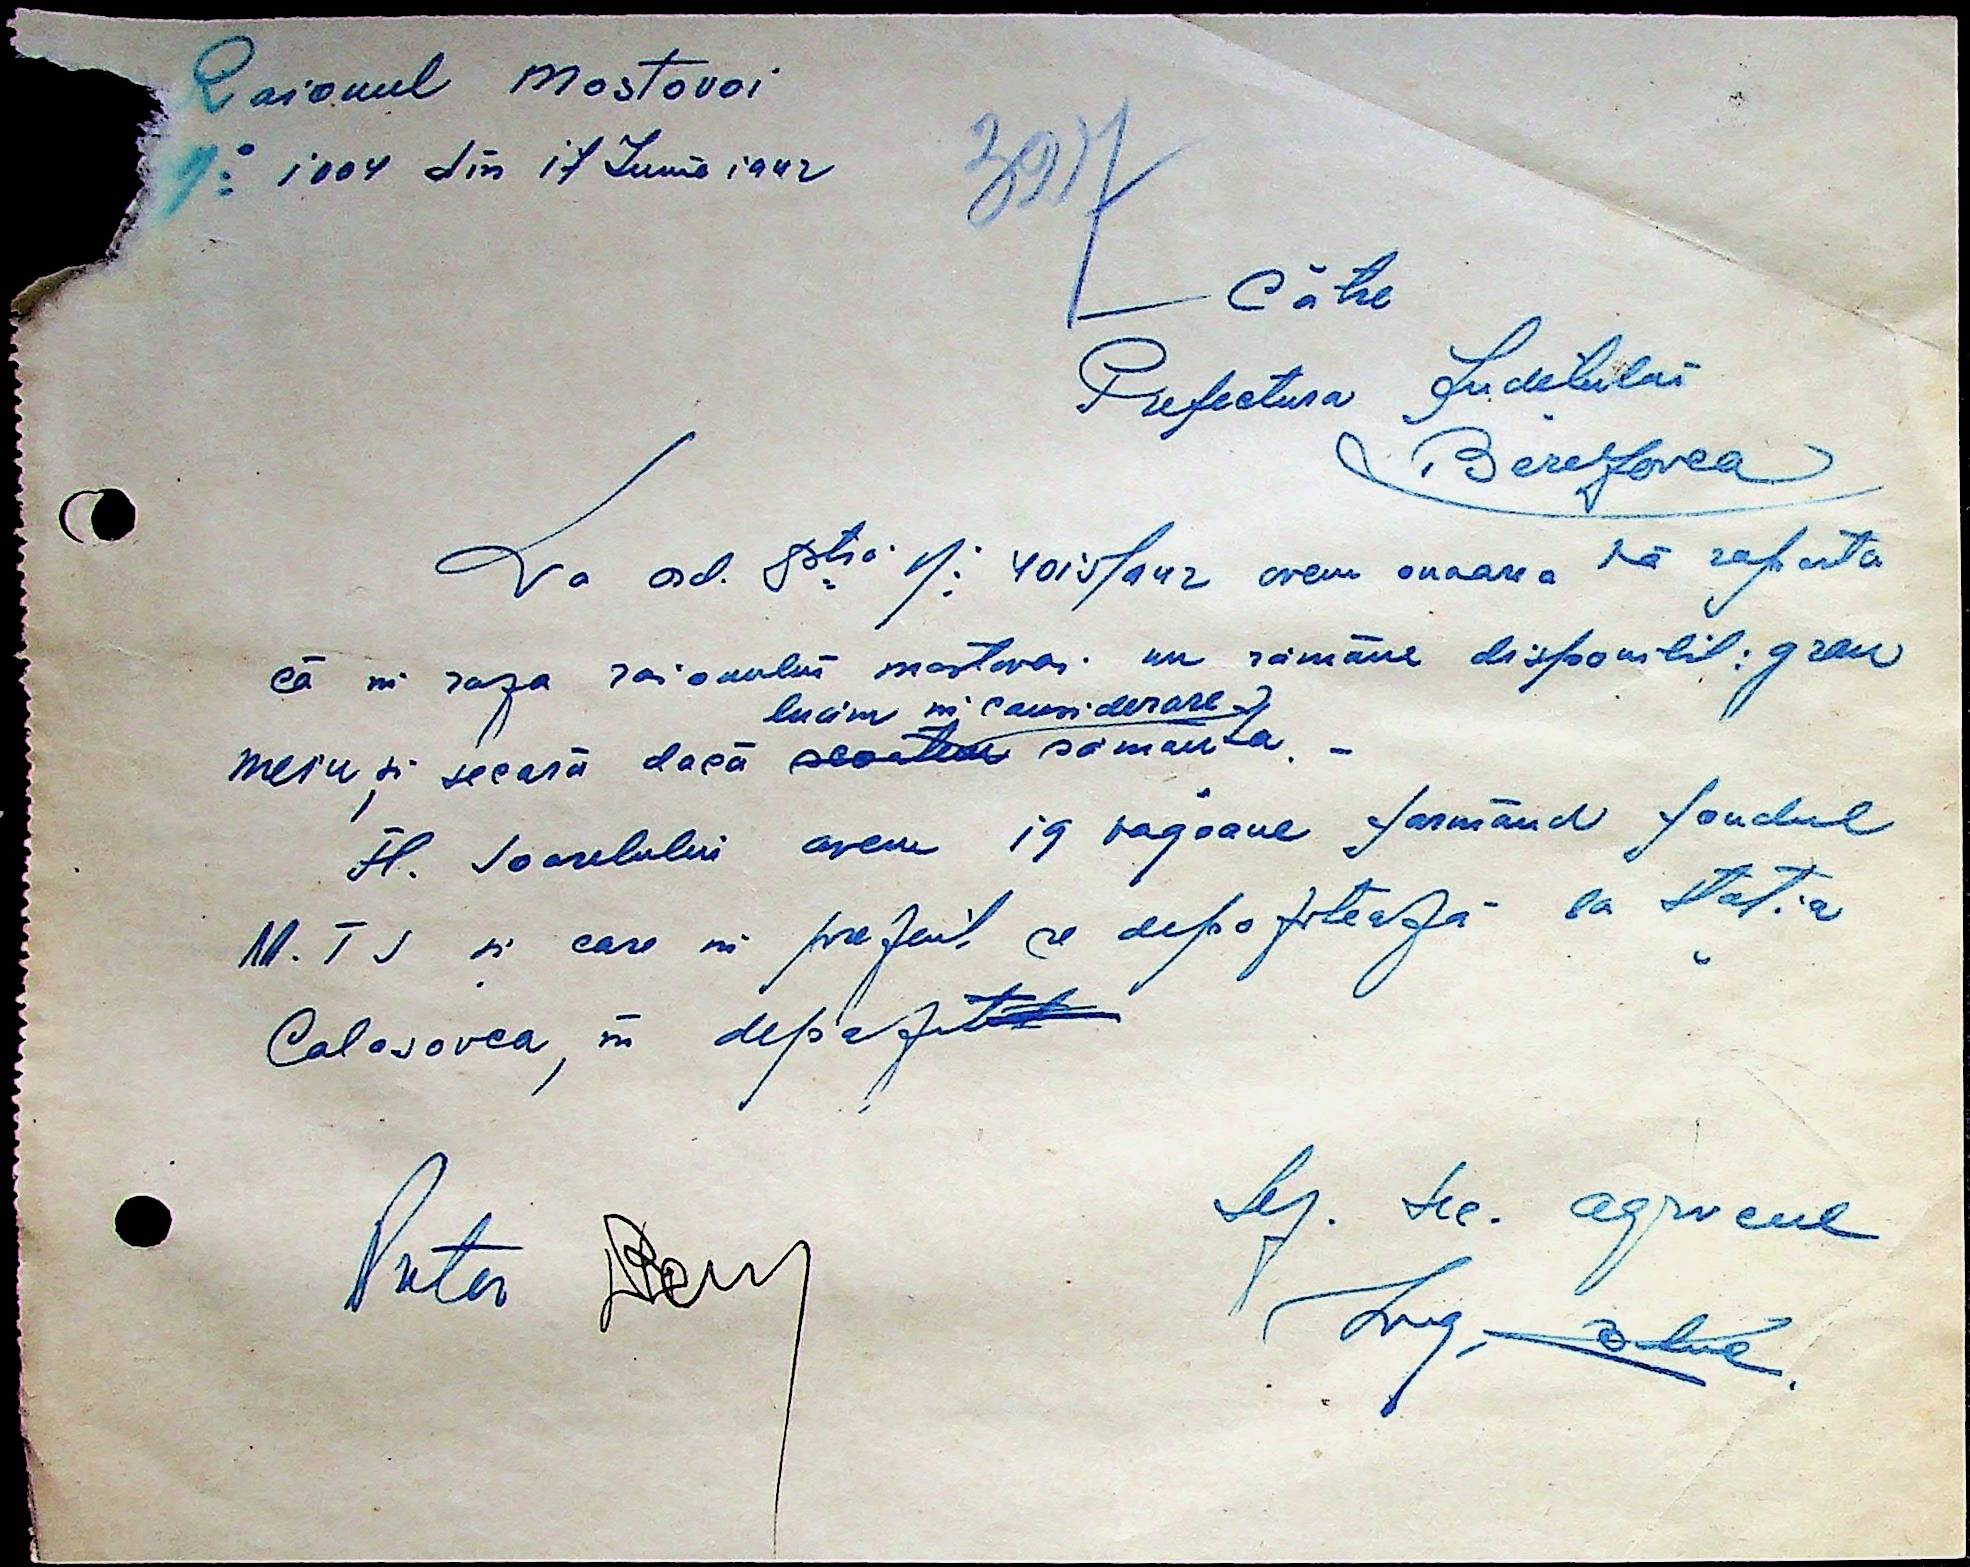 Raionul Mostovoi
No: 1004 din 17 Iunie 1942
397
Către
Prefectura Județului
Berezovca
La ord. Dstră No: 4015/942 avem onoarea vă raporta
că în raza raionului mostovoi nu rămâne disponibil: grâu
luăm în considerare
meiu, și secară dacă scoatem sămânța. -
Fl. Soarelului avem 19 vagoane formând fondul
M.T S și care în prezent se depozitează la Stația
Calosovca, în depozit
Pretor
Șef. sec. agricole
Ing.